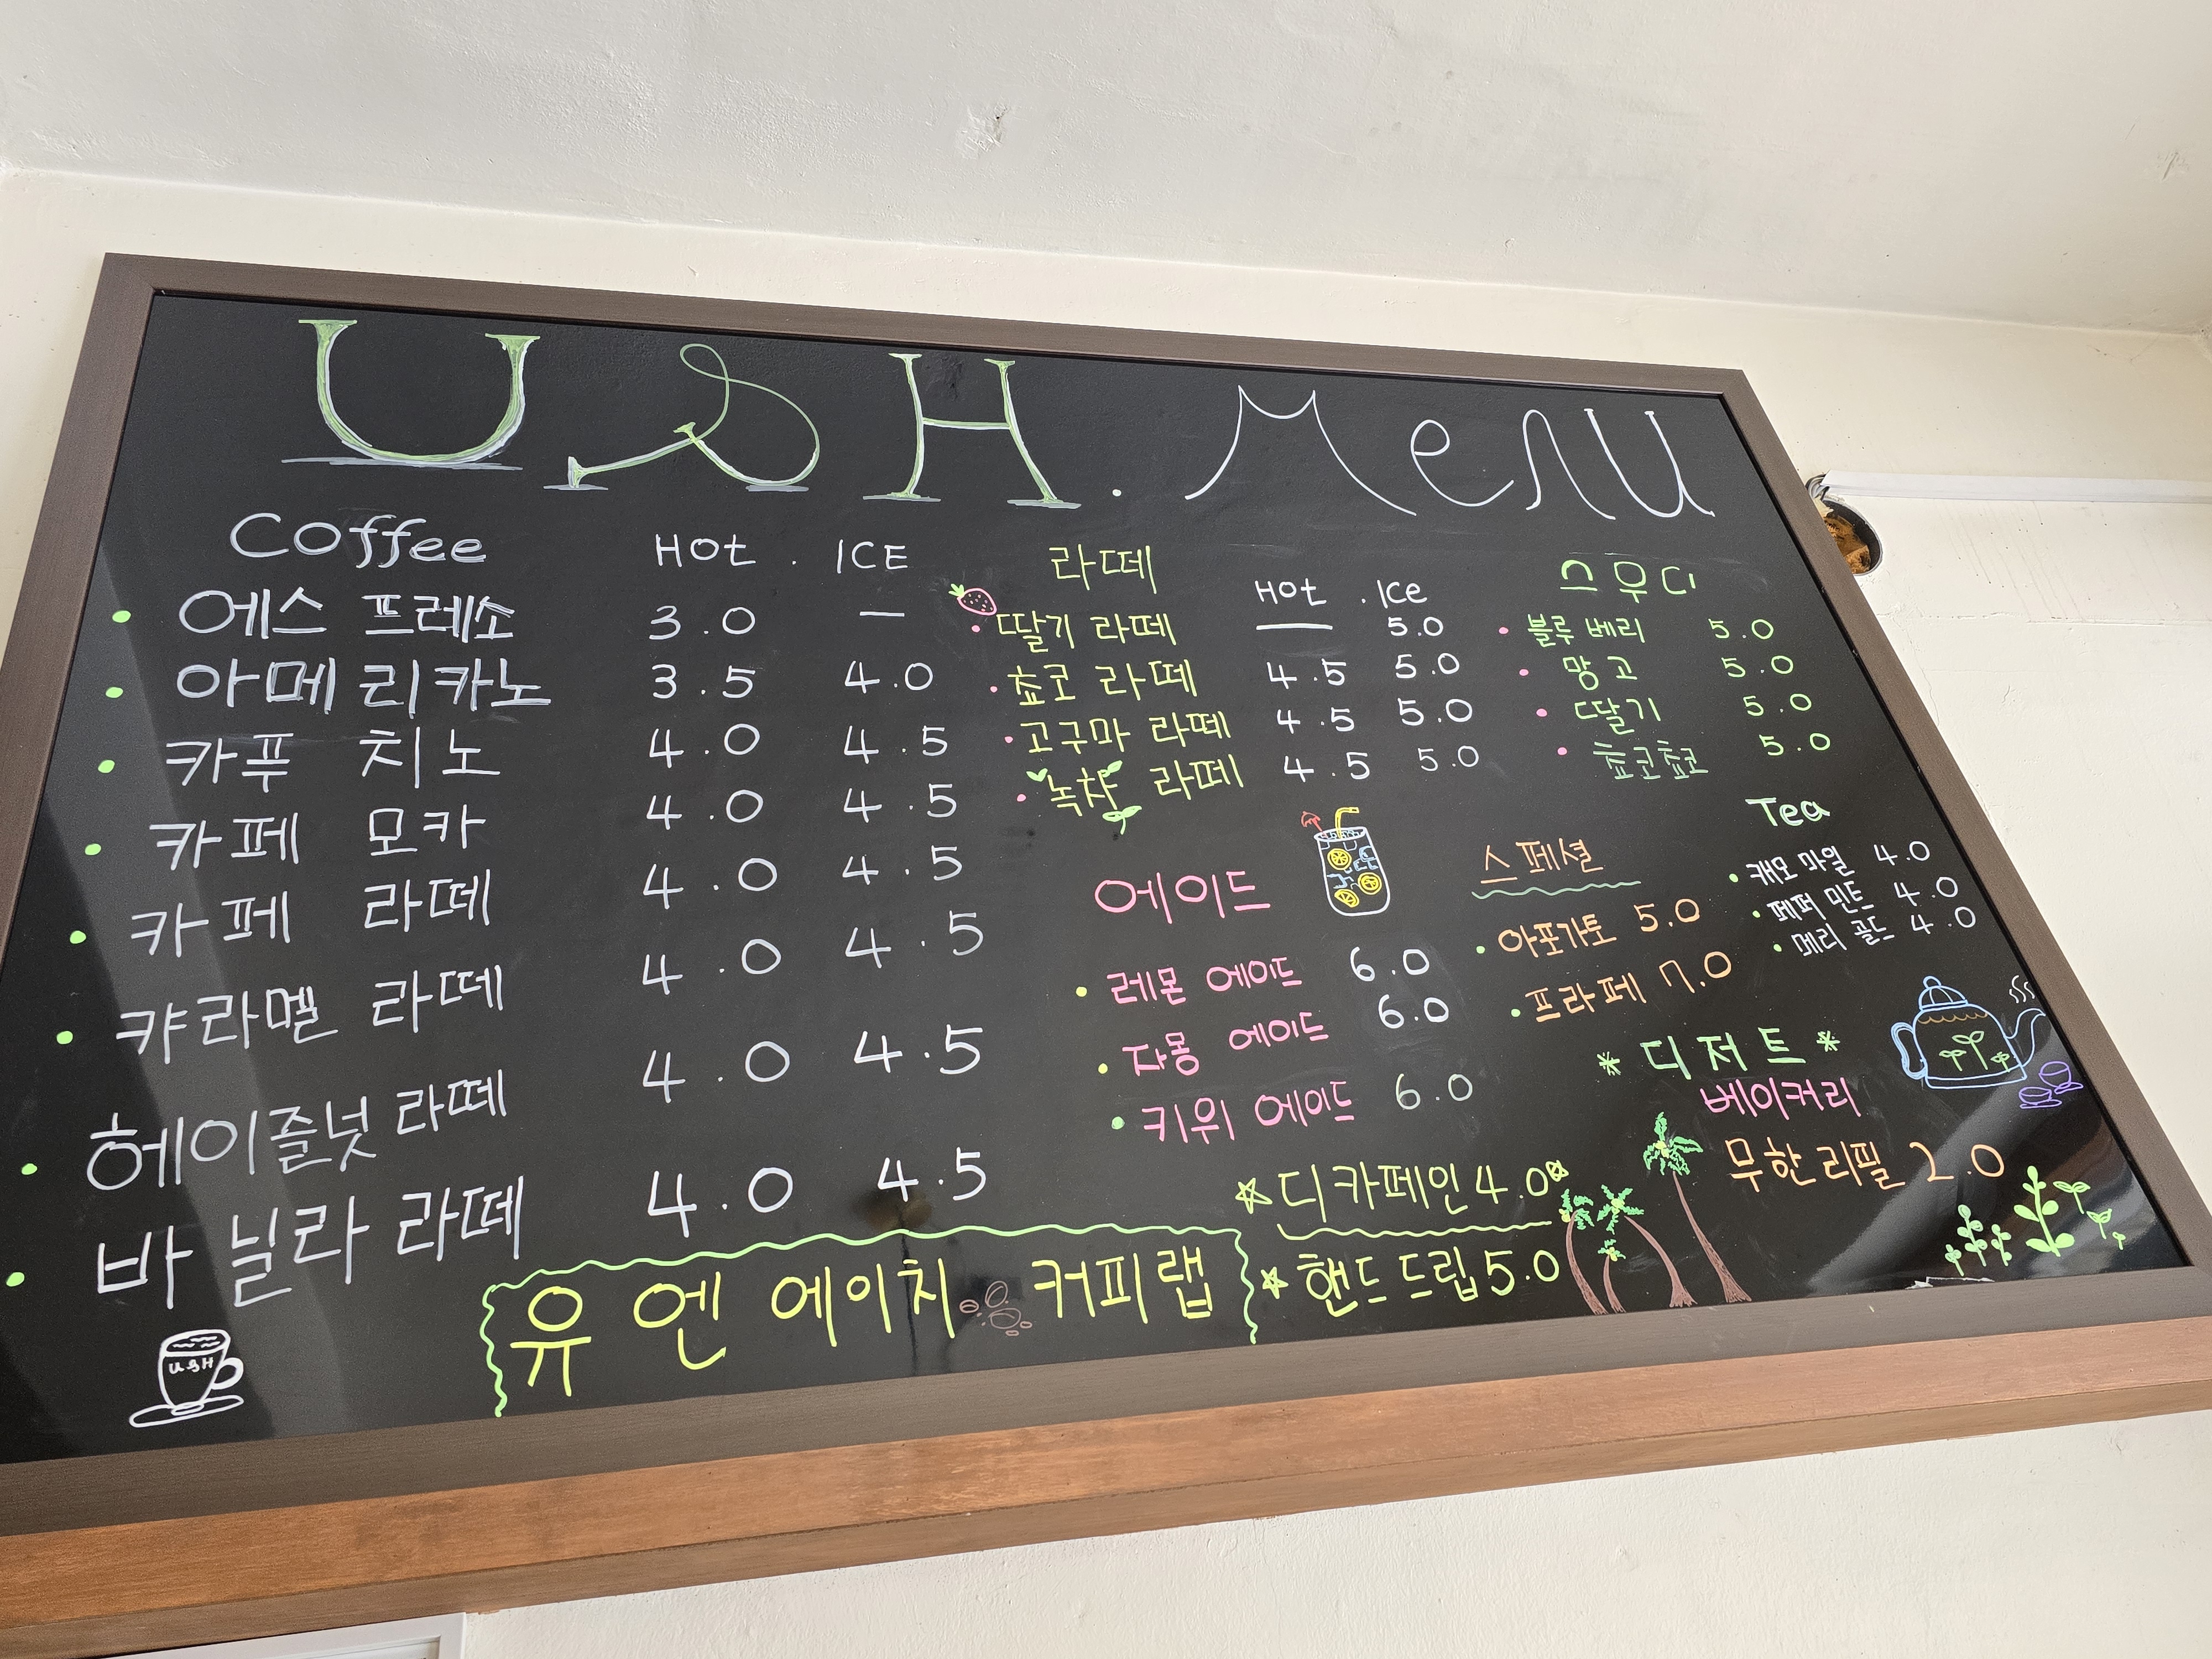 U&H. Menu
Coffee HOt . ICE
에스프레소 3.0 —
아메리카노 3.5 4.0
카푸치노 4.0 4.5
카페 모카 4.0 4.5
카페 라떼 4.0 4.5
캬라멜 라떼 4.0 4.5
헤이즐넛 라떼 4.0 4.5
바닐라 라떼 4.0 4.5
U&H
라떼 Hot . Ice
딸기 라떼 — 5.0
쵸코 라떼 4.5 5.0
고구마 라떼 4.5 5.0
녹차 라떼 4.5 5.0
스무디
블루베리 5.0
망고 5.0
딸기 5.0
쵸코쵸코 5.0
에이드
레몬 에이드 6.0
자몽 에이드 6.0
키위 에이드 6.0
스페셜
아포가토 5.0
프라페 7.0
Tea
캐모마일 4.0
페퍼민트 4.0
메리골드 4.0
디저트
베이커리
무한리필 2.0
디카페인 4.0
핸드드립 5.0
유엔에이치 커피랩